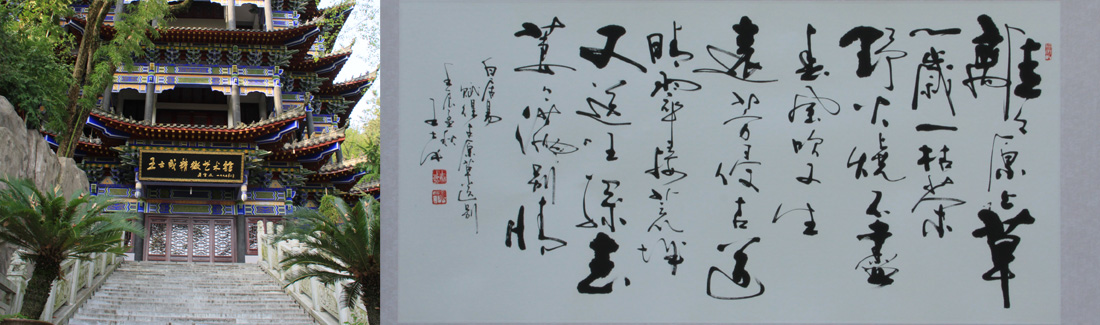 艺术馆
離離原上草
一歲一枯榮
野火燒不盡
春風吹又生
遠芳侵古道
晴翠接荒城
又送王孫去
萋萋滿別情
白居易
賦得古原草送別